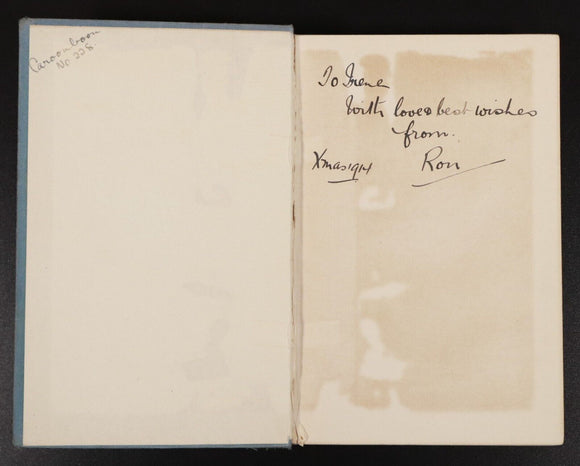 Caroonboon
No 228.
To Irene
With love & best wishes
from.
Xmas 1914 Ron